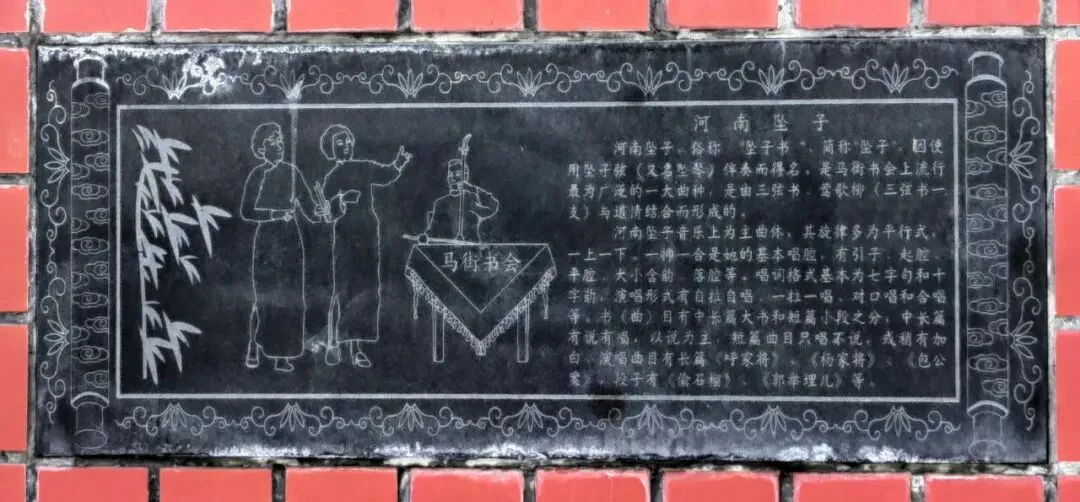 马街书会
河南坠子
河南坠子，俗称“坠子书”、简称“坠子”。因使
用坠子弦（又名坠琴）伴奏而得名。是马街书会上流行
最为广泛的一大曲种，是由三弦书、莺歌柳（三弦书一
支）与道情结合而形成的。
河南坠子音乐上为主曲体，其旋律多为平行式，
一上一下、一抻一合是她的基本唱腔，有引子、起腔、
平腔、大小含韵、落腔等。唱词格式基本为七字句和十
字韵，演唱形式有自拉自唱、一拉一唱、对口唱和合唱
等。书（曲）目有中长篇大书和短篇小段之分，中长篇
有说有唱，以说为主，短篇曲目只唱不说，或稍有加
白。演唱曲目有长篇《呼家将》、《杨家将》、《包公
案》，段子有《偷石榴》、《郭举埋儿》等。